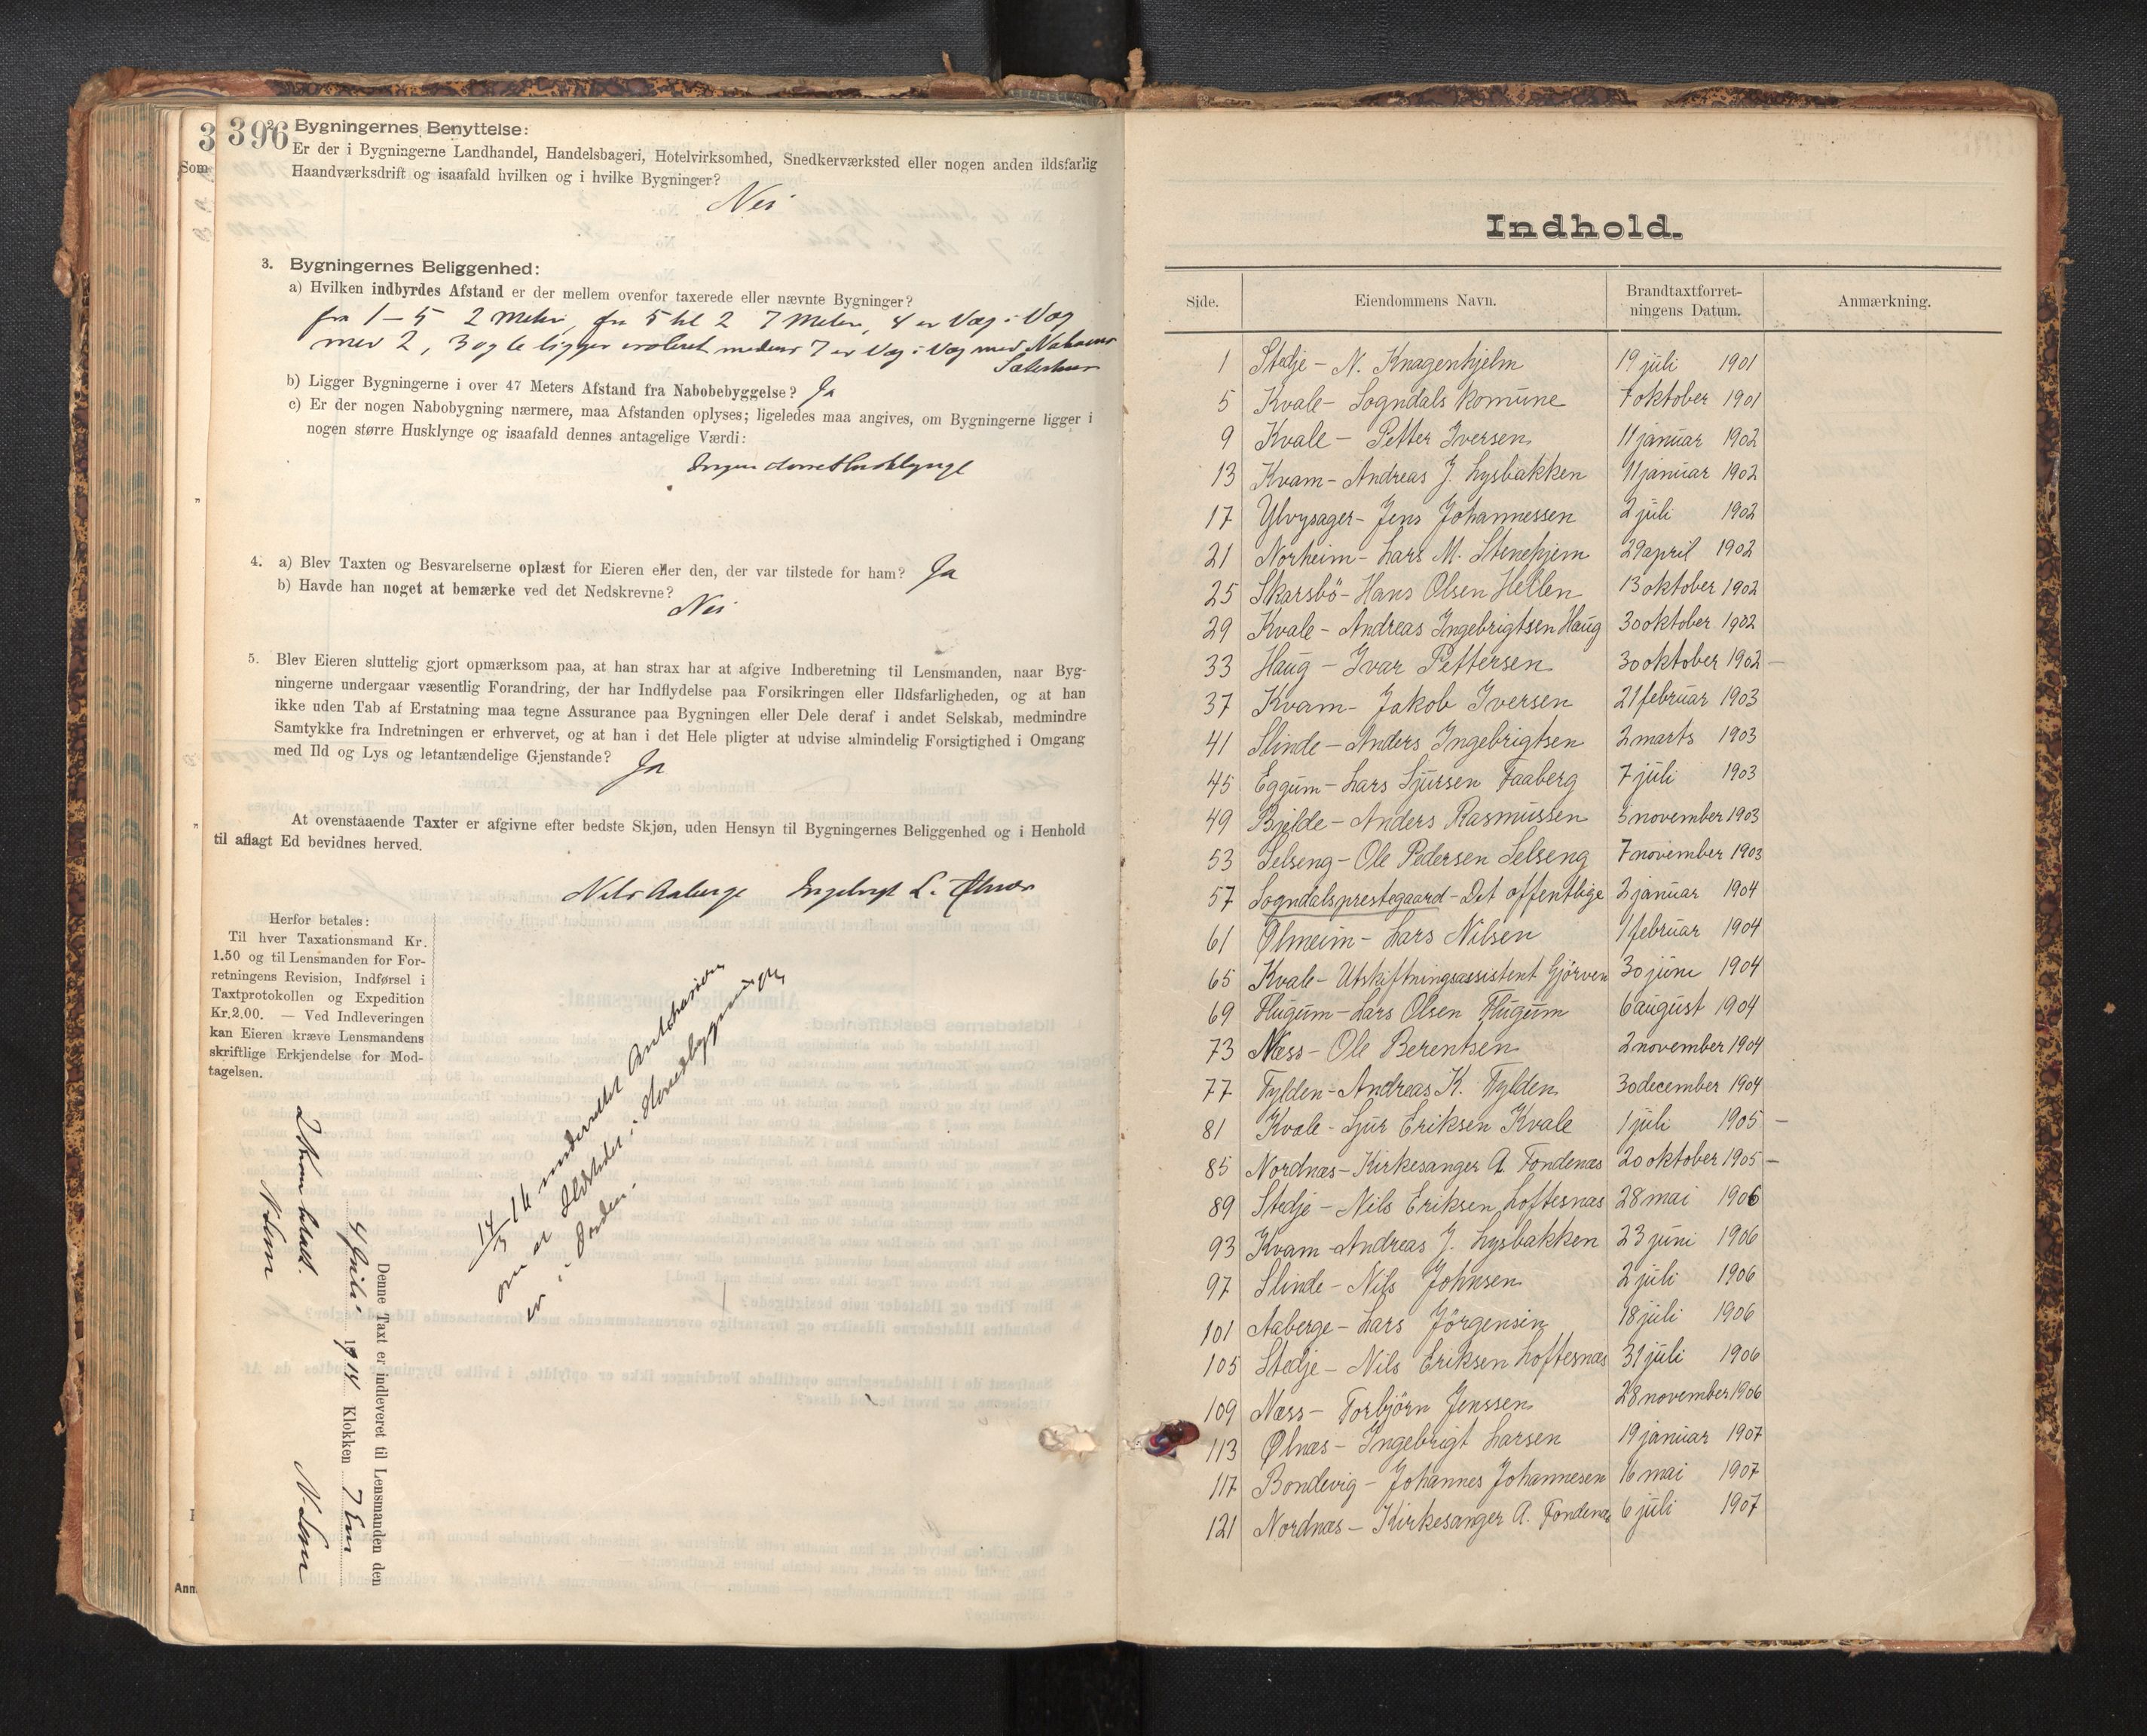 396
2. Bygningernes Benyttelse:
Er der i Bygningerne Landhandel, Handelsbageri, Hotelvirksomhed, Snedkerværksted eller nogen anden ildsfarlig
Haandværksdrift og isaafald hvilken og i hvilke Bygninger?
Nei
3. Bygningernes Beliggenhed:
a) Hvilken indbyrdes Afstand er der mellem ovenfor taxerede eller nævnte Bygninger?
fra 1 – 5 2 Meter, fra 5 til 2 7 Meter, 4 er Væg i Væg
med 2, 3 og 6 ligger isoleret medens 7 er Væg i Væg med Naboens
b) Ligger Bygningerne i over 47 Meters Afstand fra Nabobebyggelse? Ja
c) Er der nogen Nabobygning nærmere, maa Afstanden oplyses; ligeledes maa angives, om Bygningerne ligger i
nogen større Husklynge og isaafald dennes antagelige Værdi:
Ingen større Husklynge
4. a) Blev Taxten og Besvarelserne oplæst for Eieren eller den, der var tilstede for ham? Ja
b) Havde han noget at bemærke ved det Nedskrevne?
Nei
5. Blev Eieren sluttelig gjort opmærksom paa, at han strax har at afgive Indberetning til Lensmanden, naar Byg-
ningerne undergaar væsentlig Forandring, der har Indflydelse paa Forsikringen eller Ildsfarligheden, og at han
ikke uden Tab af Erstatning maa tegne Assurance paa Bygningen eller Dele deraf i andet Selskab, medmindre
Samtykke fra Indretningen er erhvervet, og at han i det Hele pligter at udvise almindelig Forsigtighed i Omgang
med Ild og Lys og letantændelige Gjenstande? Ja
At ovenstaaende Taxter er afgivne efter bedste Skjøn, uden Hensyn til Bygningernes Beliggenhed og i Henhold
til aflagt Ed bevidnes herved.
Nils Aaberge Ingebrigt L. Ølnæs
Herfor betales:
Til hver Taxationsmand Kr.
1.50 og til Lensmanden for For-
retningens Revision, Indførsel i
Taxtprotokollen og Expedition
Kr. 2.00. — Ved Indleveringen
kan Eieren kræve Lensmandens
skriftlige Erkjendelse for Mod-
tagelsen.
14/3 16 underrettet
om at Ildsteder i Hovedbygningen
er i Orden.
Denne Taxt er indleveret til Lensmanden den
4 juli 1914 Klokken 7 Em
2 Kron betalt.
Indhold.
Side. Eiendommens Navn. Brandtaxtforret-
ningens Datum. Anmærkning.
1 Stedje – N. Knagenhjelm 19 juli 1901
5 Kvale – Sogndals komune 7 oktober 1901
9 Kvale – Petter Iversen 11 januar 1902
13 Kvam – Andreas J. Lysbakken 11 januar 1902
17 Ylvysager – Jens Johannessen 2 juli 1902
21 Norheim – Lars M. Stenehjem 29 april 1902
25 Skarsbö – Hans Olsen Hellen 13 oktober 1902
29 Kvale – Andreas Ingebrigtsen Haug 30 oktober 1902
33 Haug – Ivar Pettersen 30 oktober 1902 –
37 Kvam – Jakob Iversen 21 februar 1903
41 Slinde – Anders Ingebrigtsen 2 marts 1903
45 Eggum – Lars Sjursen Faaberg 7 juli 1903
49 Bjelde – Anders Rasmussen 5 november 1903
53 Selseng – Ole Pedersen Selseng 7 november 1903
57 Sogndalsprestegaard – Det offentlige 2 januar 1904
61 Ølmeim – Lars Nilsen 1 februar 1904
65 Kvale – Utskiftningsassistent Gjörven 30 juni 1904
69 Flugum – Lars Olsen Flugum 6 august 1904
73 Næss – Ole Berentsen 2 november 1904
77 Tylden – Andreas K. Tylden 30 december 1904
81 Kvale – Sjur Eriksen Kvale 1 juli 1905 –
85 Nordnæs – Kirkesanger A. Fondenæs 20 oktober 1905 –
89 Stedje – Nils Eriksen Loftesnæs 28 mai 1906
93 Kvam – Andreas J. Lysbakken 23 juni 1906
97 Slinde – Nils Johnsen 2 juli 1906
101 Aaberge – Lars Jörgensen 18 juli 1906
105 Stedje – Nils Eriksen Loftesnæs 31 juli 1906
109 Næss – Torbjörn Jenssen 28 november 1906
113 Ølnæs – Ingebrigt Larsen 19 januar 1907
117 Bondevig – Johannes Johannesen 16 mai 1907
121 Nordnæs – Kirkesanger A. Fondenæs 6 juli 1907